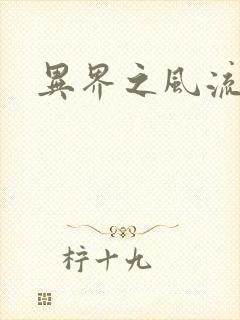 異界之風流
柠十九